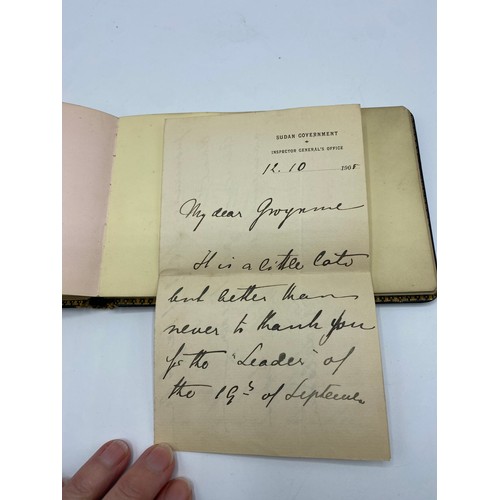 SUDAN GOVERNMENT
INSPECTOR GENERAL'S OFFICE
12.10 1908
My dear Gwynne
It is a little late
but better than
never to thank you
for the "Leader" of
the 19th of September